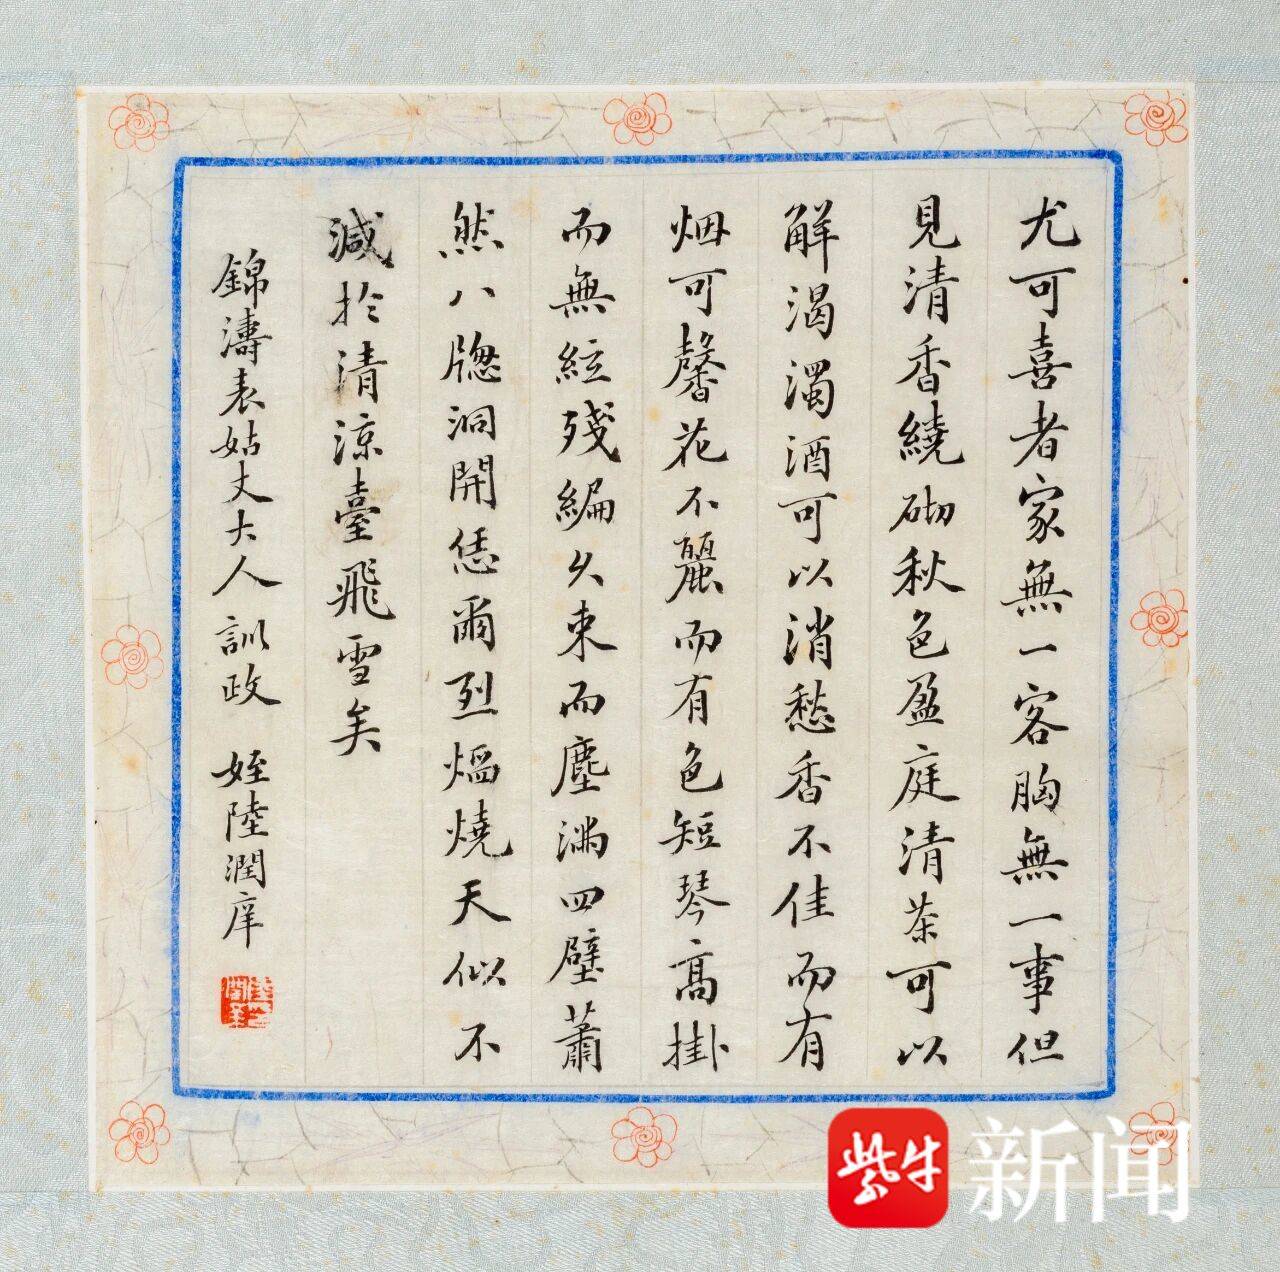 尤可喜者家無一客胸無一事但
見清香繞砌秋色盈庭清茶可以
解渴濁酒可以消愁香不佳而有
烟可馨花不麗而有色短琴高掛
而無絃殘編久束而塵滿四壁蕭
然八牕洞開恁爾烈熖燒天似不
減於清涼臺飛雪矣
錦濤表姑丈大人訓政 姪陸潤庠
紫牛
新闻